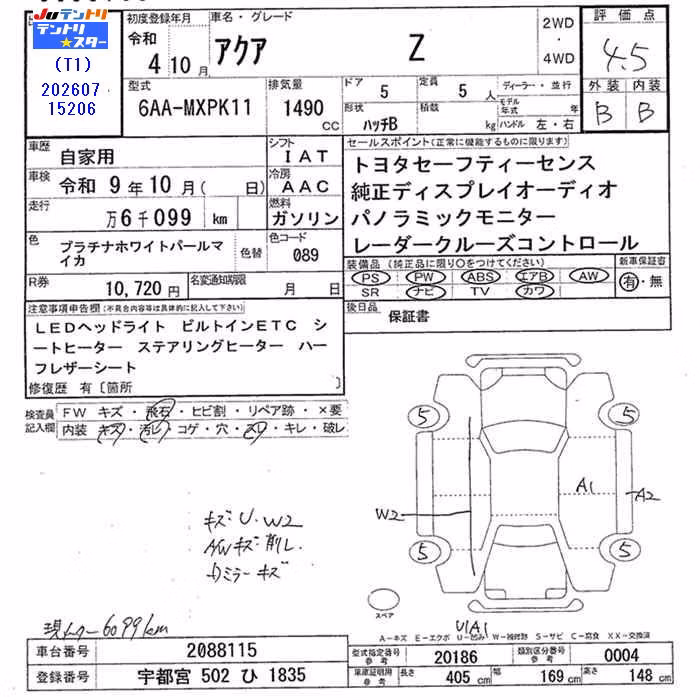 JUテントリ
テントリ★スター
(T1)
202607
15206
初度登録年月
令和 4 10 月
車名・グレード
アクア Z
2WD
・
4WD
評価点
4.5
型式
6AA-MXPK11
排気量
1490 CC
ドア 5
定員 5 人
形状 ハッチB
積数 kg
ディーラー・並行
モデル年式 年
ハンドル 左・右
外装 内装
B B
車歴 自家用
シフト IAT
車検 令和 9年10月( 日)
冷房 AAC
走行 万6千099 km
燃料 ガソリン
色 プラチナホワイトパールマイカ
色替
色コード 089
R券 10,720円
名変通知期限 月 日
セールスポイント(正常に機能するものに限ります)
トヨタセーフティーセンス
純正ディスプレイオーディオ
パノラミックモニター
レーダークルーズコントロール
装備品(純正品に限り○をつけてください)
PS PW ABS エアB AW
SR ナビ TV カワ
新車保証書
有・無
後日品 保証書
注意事項申告欄(不具合内容等は具体的に記入して下さい)
LEDヘッドライト ビルトインETC シ
ートヒーター ステアリングヒーター ハー
フレザーシート
修復歴 有〔箇所 〕
検査員記入欄
FW キズ・飛石・ヒビ割・リペア跡・×要
内装 キズ・汚レ・コゲ・穴・スレ・キレ・破レ
キズ U. W2
AWキズ 削レ.
ミラーキズ
5 5
A1
A2
W2
5 5
スペア
U1A1
現メーター6099km
A-キズ E-エクボ U-凹み W-補修跡 S-サビ C-腐食 XX-交換済
車台番号 2088115
登録番号 宇都宮 502 ひ 1835
型式指定番号 参考 20186
類別区分番号 参考 0004
車庫証明用 参考 長さ 405 cm 幅 169 cm 高さ 148 cm